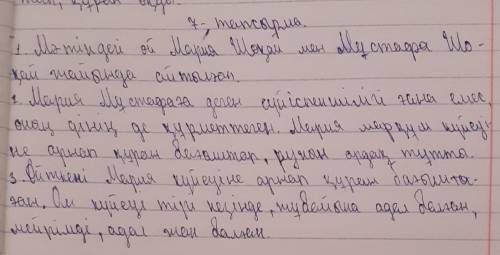 құран оқды.
7- тапсырма.
1. Мәтіндей ой Мария Шоқай мен Мұстафа Шо-
қай жайында айтылған.
2. Мария Мұстафаға деген сүйіспеншілігі ғана емес,
оның дінің де құрметтеген. Мария марқұм күйеуі-
не арнап құран бағыштап, рухын ардақ тұтты.
3. Өйткені Мария күйеуіне арнап құран бағышта-
ған, Ол күйеуі тірі кезінде, жұбайына адал болған,
мейрімді, адал жан болған.